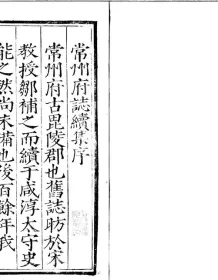 常州府誌續集序
常州府古毘陵郡也舊誌昉於宋
教授鄒補之而續于咸淳太守史
能之然尚未備也後百餘年我